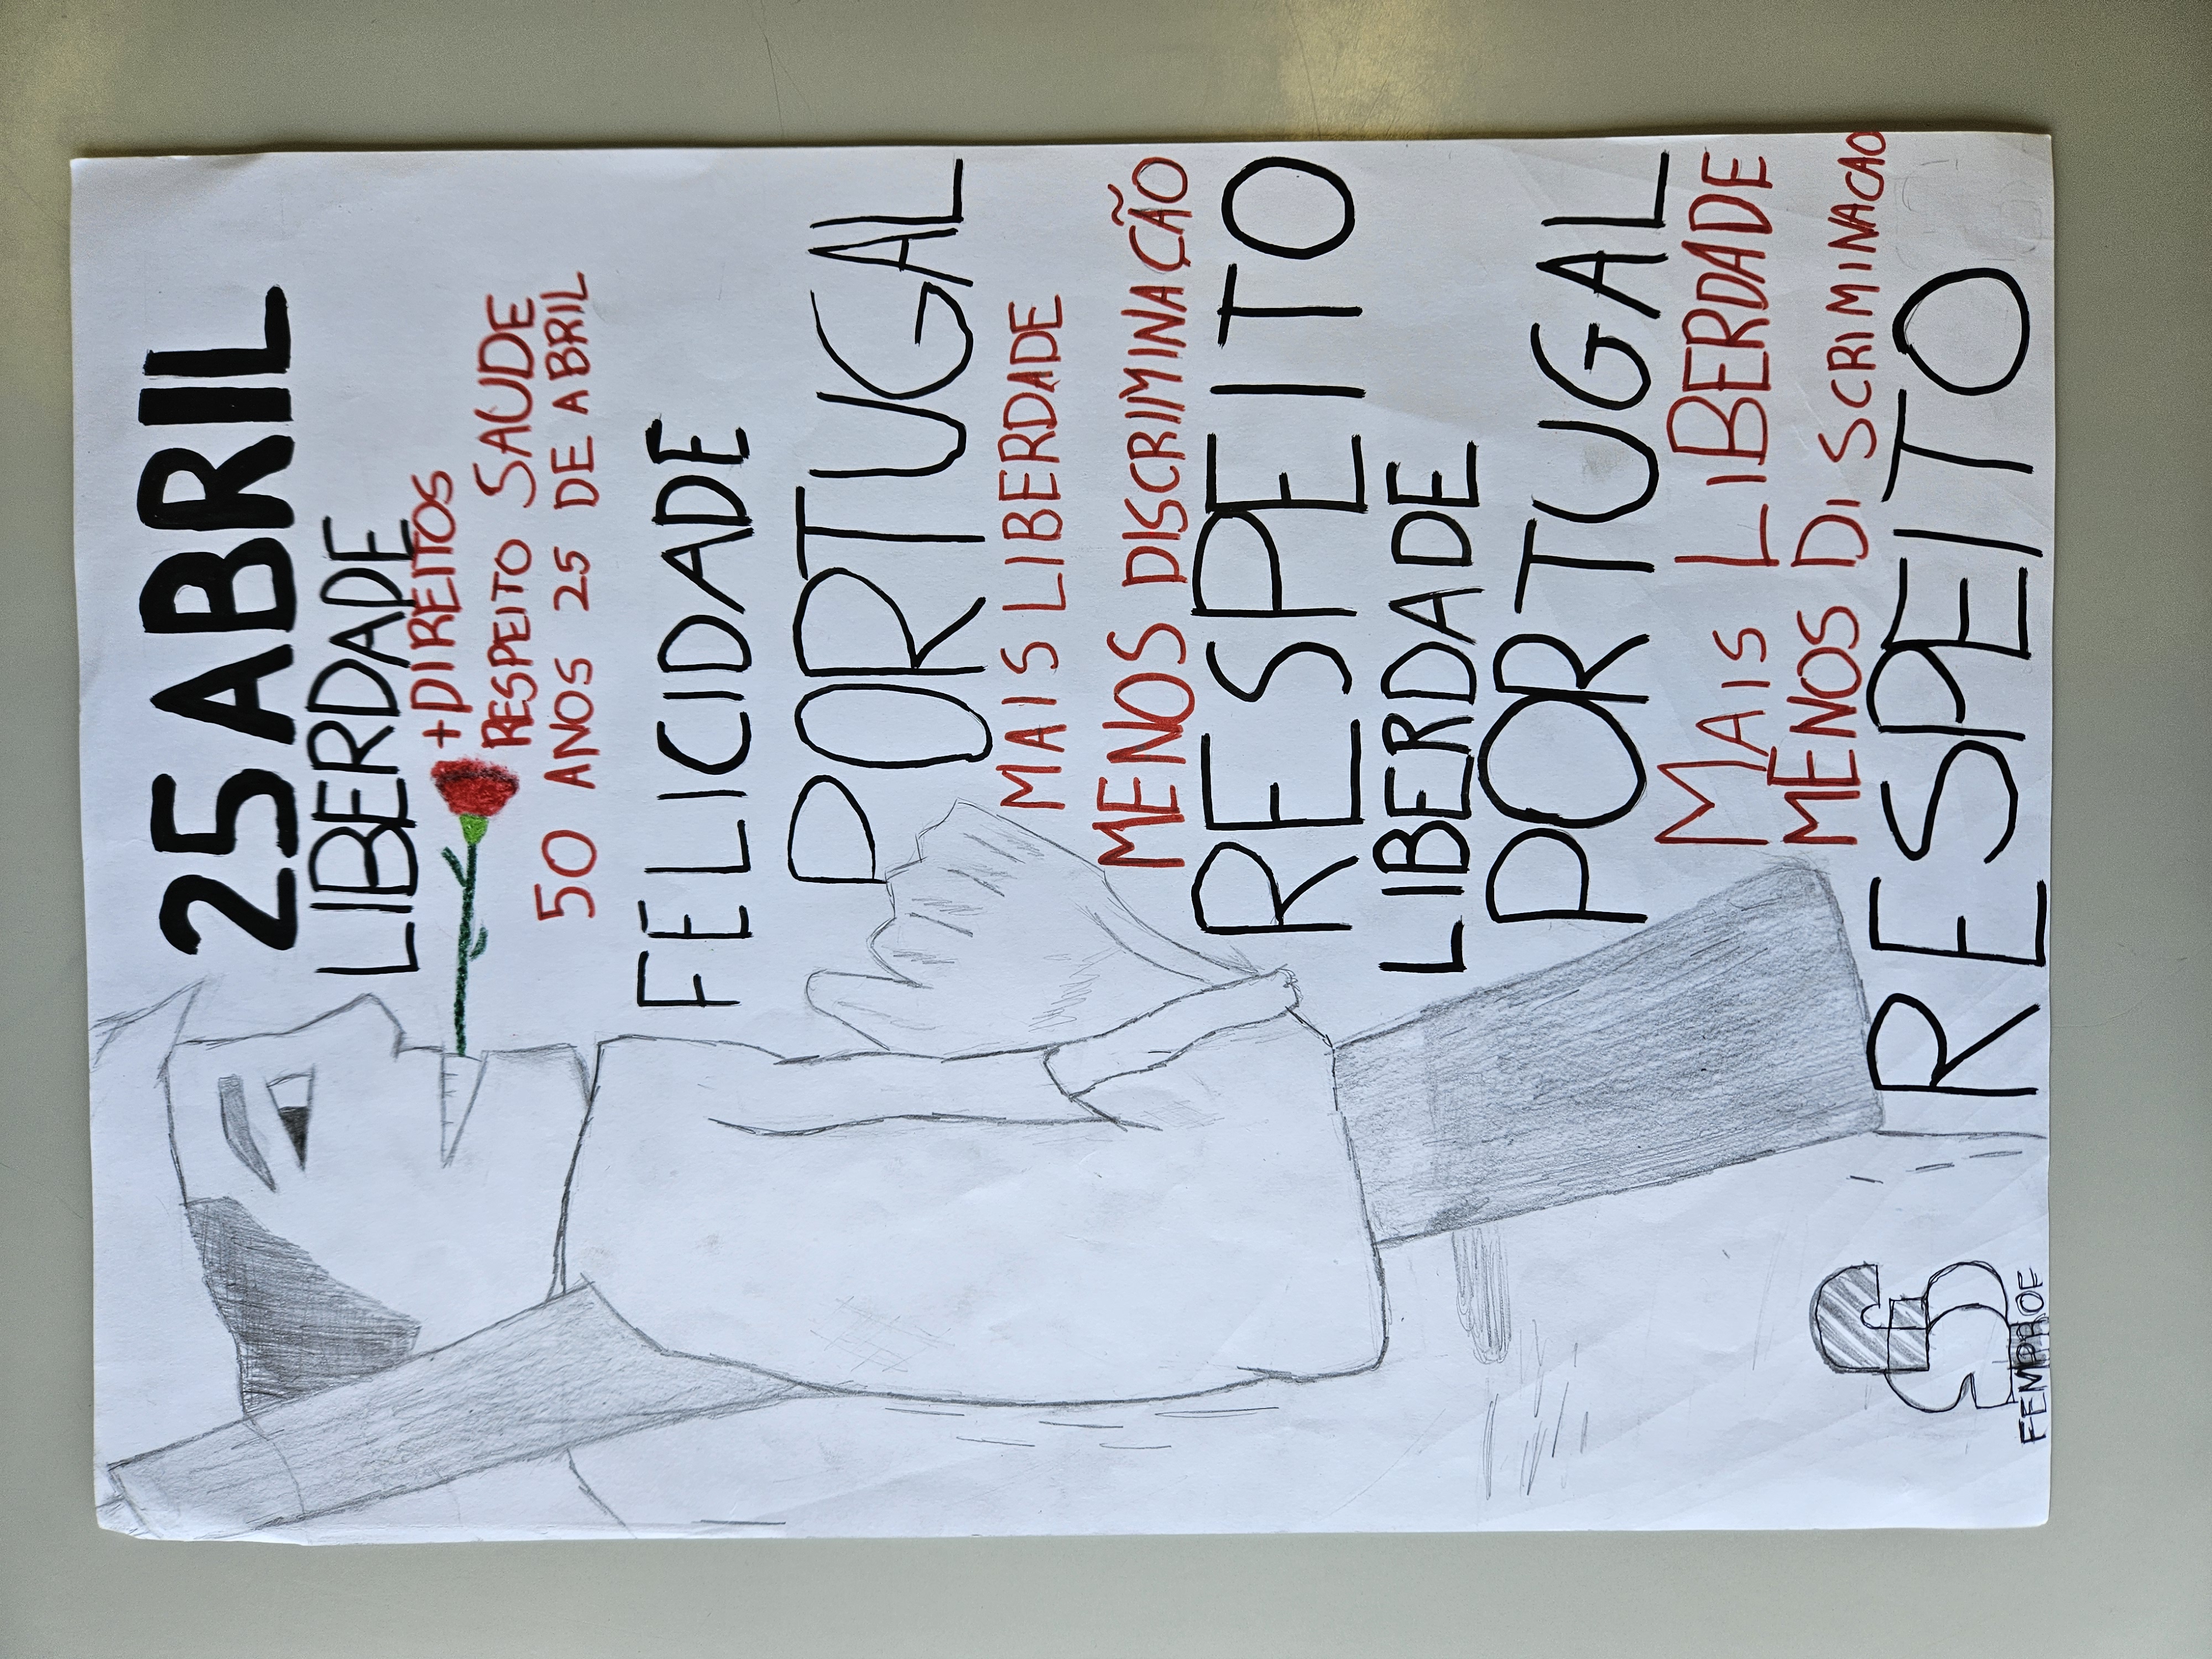 25 ABRIL
LIBERDADE
+DIREITOS
RESPEITO SAUDE
50 ANOS 25 DE ABRIL
FELICIDADE
PORTUGAL
MAIS LIBERDADE
MENOS DISCRIMINAÇÃO
RESPEITO
LIBERDADE
PORTUGAL
MAIS LIBERDADE
MENOS DISCRIMINACAO
RESPEITO
FEMPROF